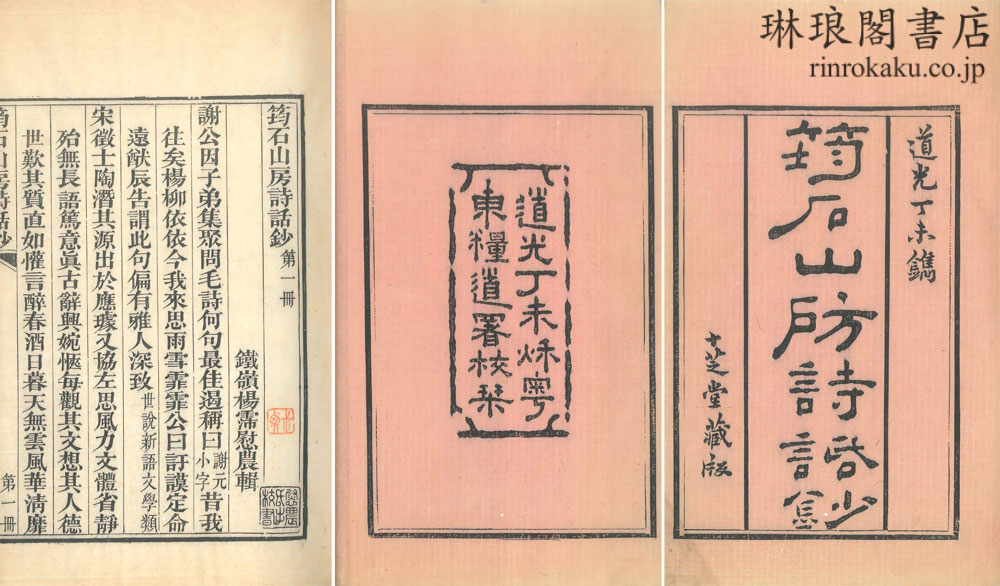 琳琅閣書店
rinrokaku.co.jp
道光丁未鐫
筠石山房詩話鈔
十芝堂藏版
道光丁未秌粵
東糧道署校栞
筠石山房詩話鈔 第一冊
鐵嶺楊霈慰農輯
謝公因子弟集聚問毛詩何句最佳遏稱曰謝元小字昔我
往矣楊柳依依今我來思雨雪霏霏公曰訏謨定命
遠猷辰告謂此句偏有雅人深致世說新語文學類
宋徵士陶潛其源出於應璩又協左思風力文體省靜
殆無長語篤意眞古辭興婉愜每觀其文想其人德
世歎其質直如懽言醉春酒日暮天無雲風華清靡
筠石山房詩話鈔
第一冊